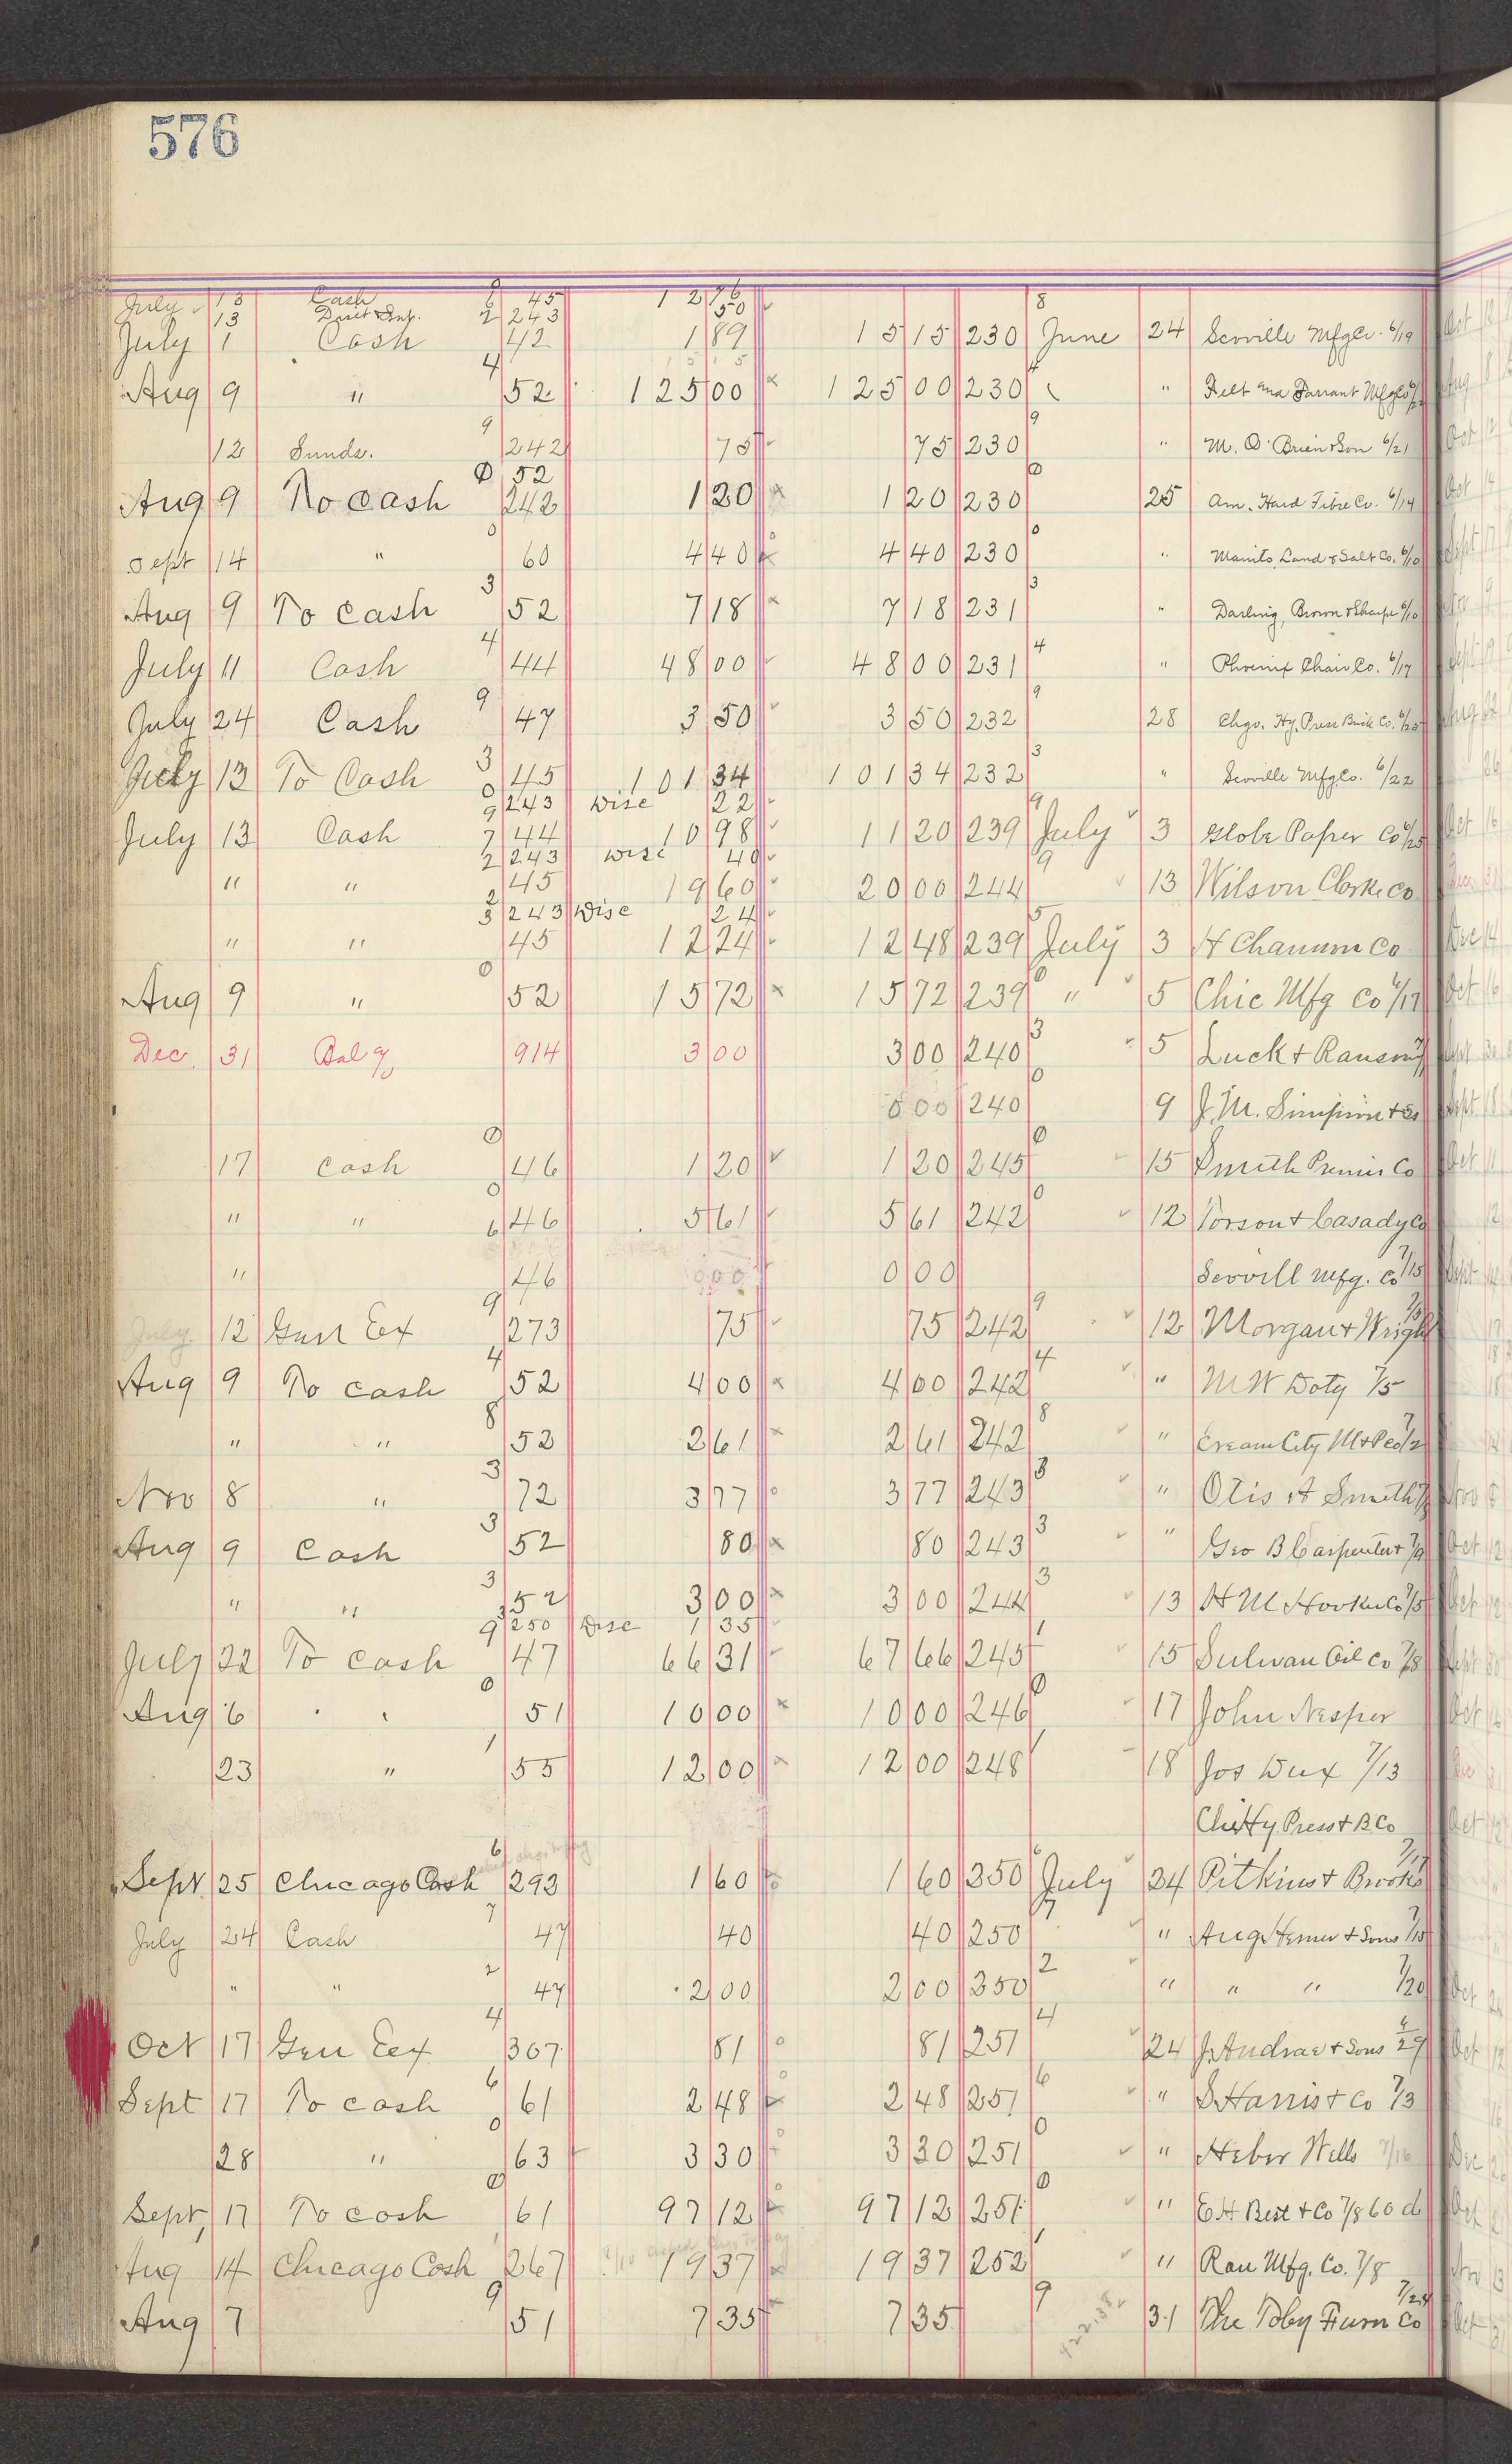 576
July 13 Cash 45 12 76
13 243 50
July 1 Cash 42 1 89 15 15 230 June 24 Scoville Mfg Co. 6/19
Aug 9 " 52 125 00 125 00 230 " Felt and Tarrant Mfg Co
12 Sunds. 242 75 75 230 " M. O'Brien & Son 6/21
52
Aug 9 To Cash 242 1 20 1 20 230 25 Am. Hard Fibre Co. 6/14
Sept 14 " 60 4 40 4 40 230 " Manito Land & Salt Co. 6/10
Aug 9 To Cash 52 7 18 7 18 231 " Darling, Brown & Sharpe 6/10
July 11 Cash 44 48 00 48 00 231 " Phoenix Chair Co. 6/17
July 24 Cash 47 3 50 3 50 232 28 Chgo. Hy. Press Brick Co. 6/25
July 13 To Cash 45 101 34 101 34 232 " Scoville Mfg Co. 6/22
243 Disc 22
July 13 Cash 44 10 98 11 20 239 July 3 Globe Paper Co 6/25
243 Disc 40
" " 45 19 60 20 00 244 13 Wilson Clarke Co
243 Disc 24
" " 45 12 24 12 48 239 July 3 H Channon Co
Aug 9 " 52 15 72 15 72 239 " 5 Chic Mfg Co 6/17
Dec. 31 Bal 914 3 00 3 00 240 5 Luck & Ransom
0 00 240 9 J. M. Simpson & Co
17 Cash 46 1 20 1 20 245 15 Smith Premier Co
" " 46 5 61 5 61 242 12 Torson & Casady Co
" 46 0 00 0 00 Scovill Mfg. Co 7/15
July 12 Genl Ex 273 75 75 242 12 Morgan & Wright 7/5
Aug 9 To cash 52 4 00 4 00 242 " M W Doty 7/5
" " 52 2 61 2 61 242 " Cream City
Nov 8 " 72 3 77 3 77 243 " Otis A Smith
Aug 9 Cash 52 80 80 243 " Geo B Carpenter & 7/9
" " 52 3 00 3 00 244 13 H M Hooker Co 7/5
250 Disc 1 35
July 22 To Cash 47 66 31 67 66 245 15 Sulivan Oil Co 7/8
Aug 6 " " 51 10 00 10 00 246 17 John Nesper
23 " 55 12 00 12 00 248 18 Jos Dux 7/13
Chi Hy Press & B Co
Sept. 25 Chicago Cash 293 1 60 1 60 250 July 24 Pitkins & Brooks
July 24 Cash 47 40 40 250 " Aug. & Sons 7/15
" " 47 2 00 2 00 250 " " " 7/20
Oct 17 Gen Ex 307 81 81 251 24 J. Andrae & Sons 6/29
Sept 17 To cash 61 2 48 2 48 251 " S Harris & Co 7/3
28 " 63 3 30 3 30 251 " Heber Wells 7/16
Sept, 17 To Cash 61 97 12 97 12 251 " E H Best & Co 7/8 60 d
Aug 14 Chicago Cash 267 19 37 19 37 252 " Rau Mfg. Co. 7/8
Aug 7 51 7 35 7 35 31 The Toby Furn Co 7/24